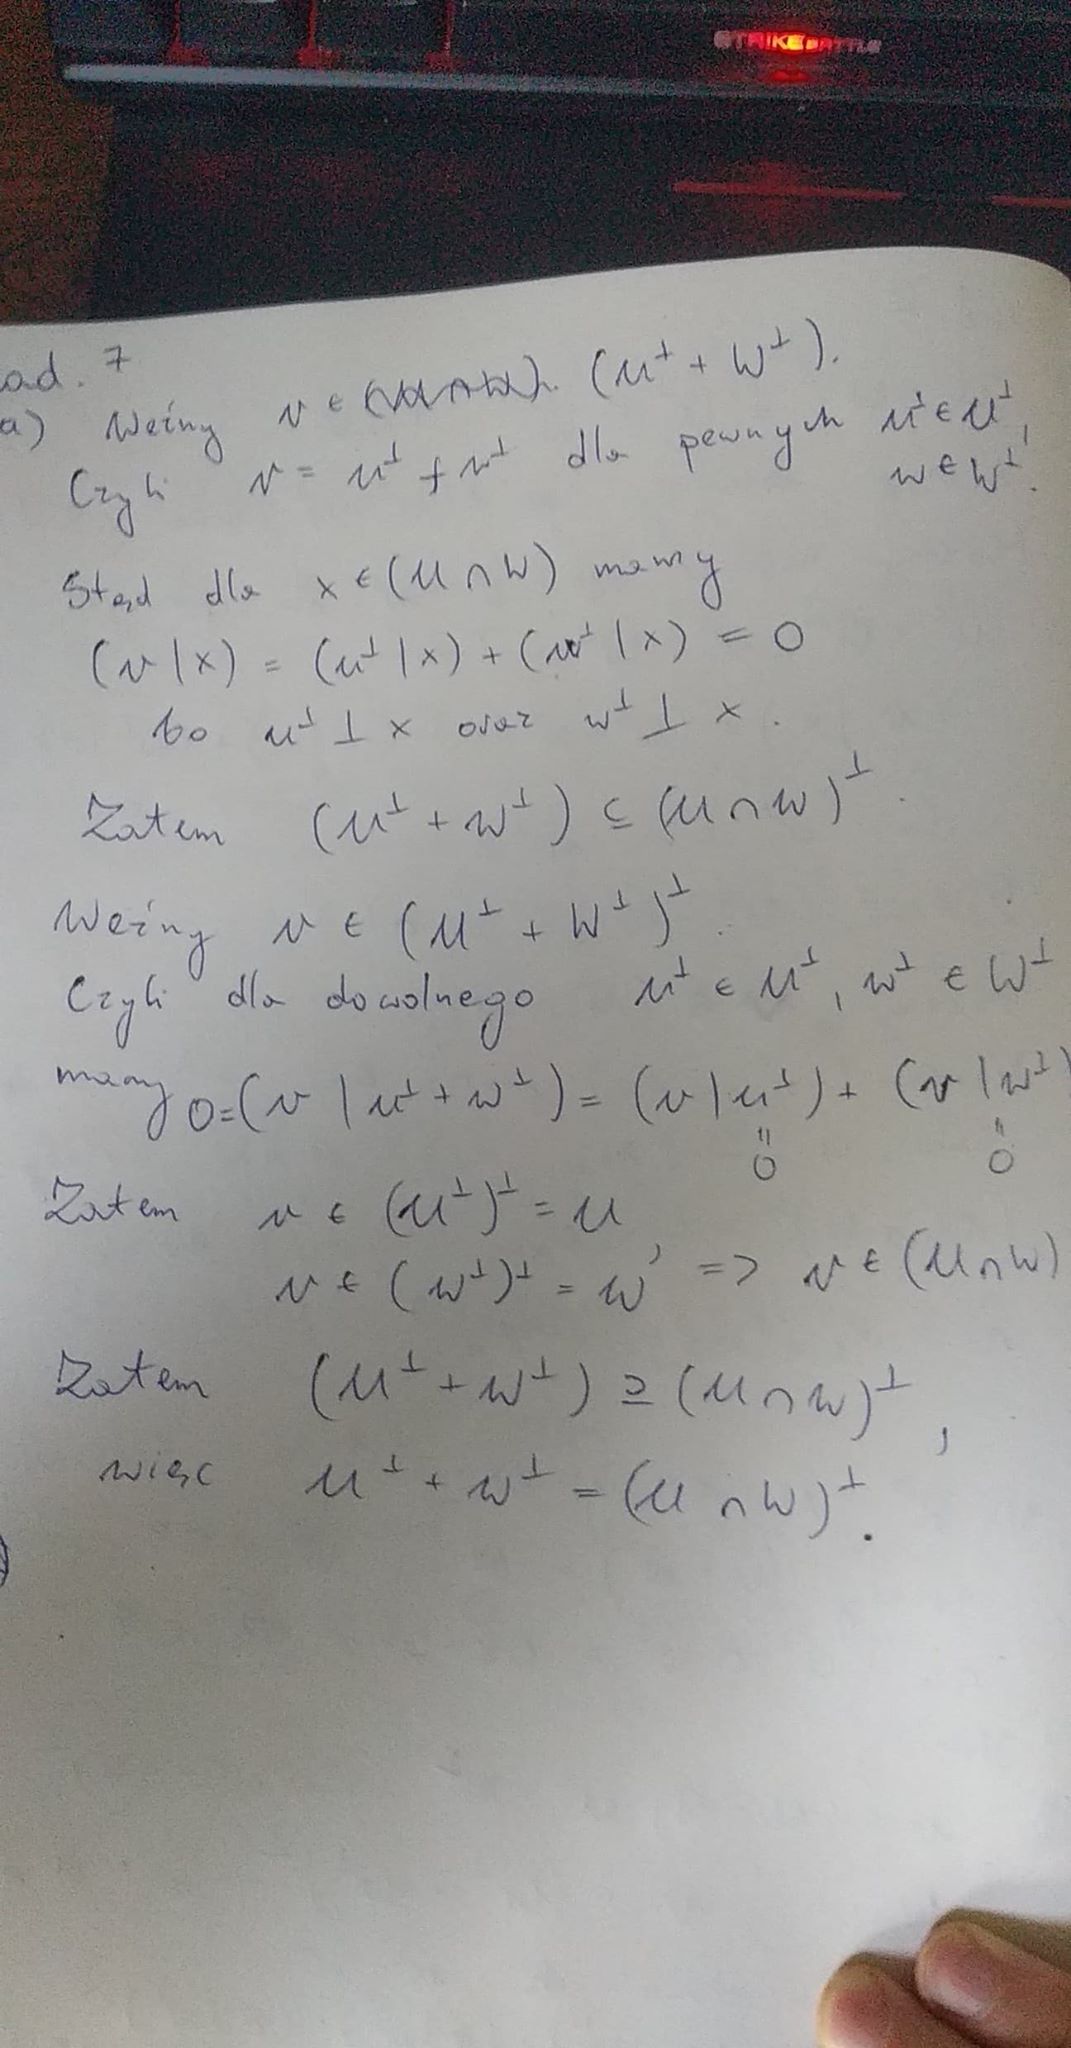 STRIKE BATTLE
ad. 7
a) Weźmy v ∈ (U^⊥ + W^⊥).
Czyli v = u^⊥ + w^⊥ dla pewnych u^⊥ ∈ U^⊥,
w ∈ W^⊥.
Stąd dla x ∈ (U ∩ W) mamy
(v | x) = (u^⊥ | x) + (w^⊥ | x) = 0
bo u^⊥ ⊥ x oraz w^⊥ ⊥ x.
Zatem (U^⊥ + W^⊥) ⊆ (U ∩ W)^⊥.
Weźmy v ∈ (U^⊥ + W^⊥)^⊥.
Czyli dla dowolnego u^⊥ ∈ U^⊥, w^⊥ ∈ W^⊥
mamy 0 = (v | u^⊥ + w^⊥) = (v | u^⊥) + (v | w^⊥)
= 0 = 0
Zatem v ∈ (U^⊥)^⊥ = U,
v ∈ (W^⊥)^⊥ = W => v ∈ (U ∩ W)
Zatem (U^⊥ + W^⊥) ⊇ (U ∩ W)^⊥,
więc U^⊥ + W^⊥ = (U ∩ W)^⊥.